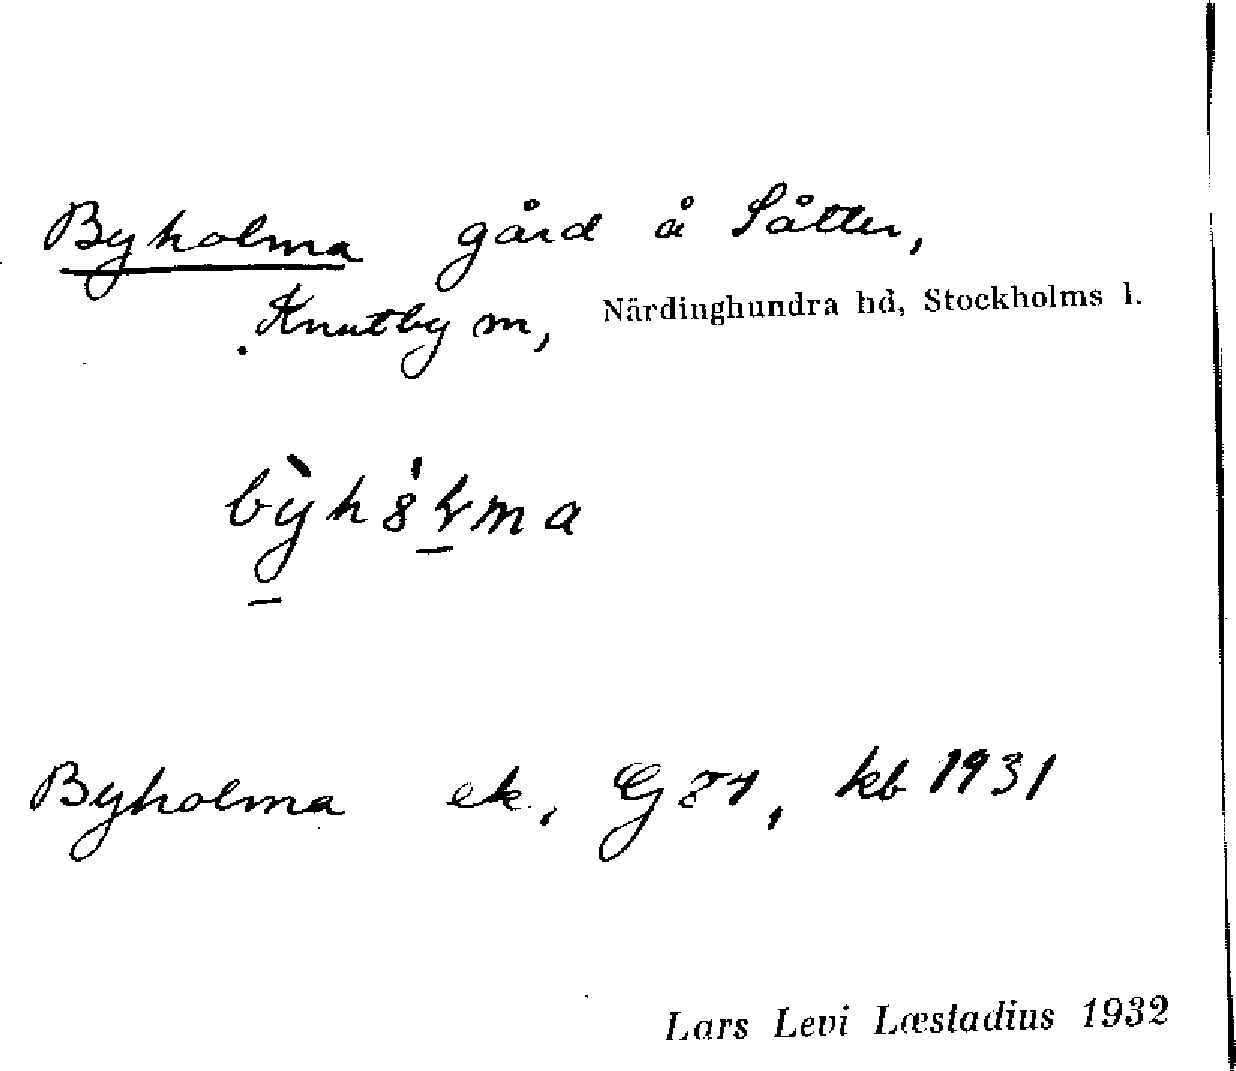 Byholma gård å Såtter,
Knutby sn, Närdinghundra hd, Stockholms l.
Byholma ek., G 84, kb 1931
Lars Levi Læstadius 1932